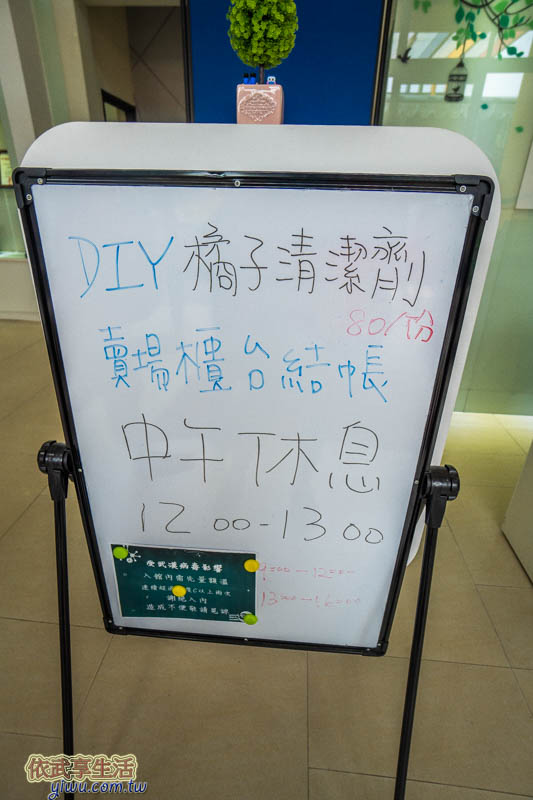 DIY 橘子清潔劑
80/份
賣場櫃台結帳
中午休息
12:00-13:00
受武漢病毒影響
入館內需先量額溫
謝絕入內
造成不便敬請見諒
13:00-16:00
依武享生活
yiwu.com.tw